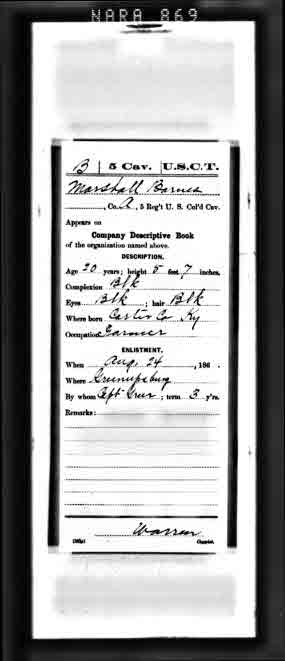 NARA 869
B | 5 Cav. | U.S.C.T.
Marshall Barnes
, Co. A, 5 Reg't U. S. Col'd Cav.
Appears on
Company Descriptive Book
of the organization named above.
DESCRIPTION.
Age 20 years; height 5 feet 7 inches.
Complexion Blk
Eyes Blk ; hair Blk
Where born Carter Co Ky
Occupation Farmer
ENLISTMENT.
When Aug. 24 , 186 .
Where Greenupsburg
By whom Capt ; term 3 y'rs.
Remarks:
Warren
Copyist.